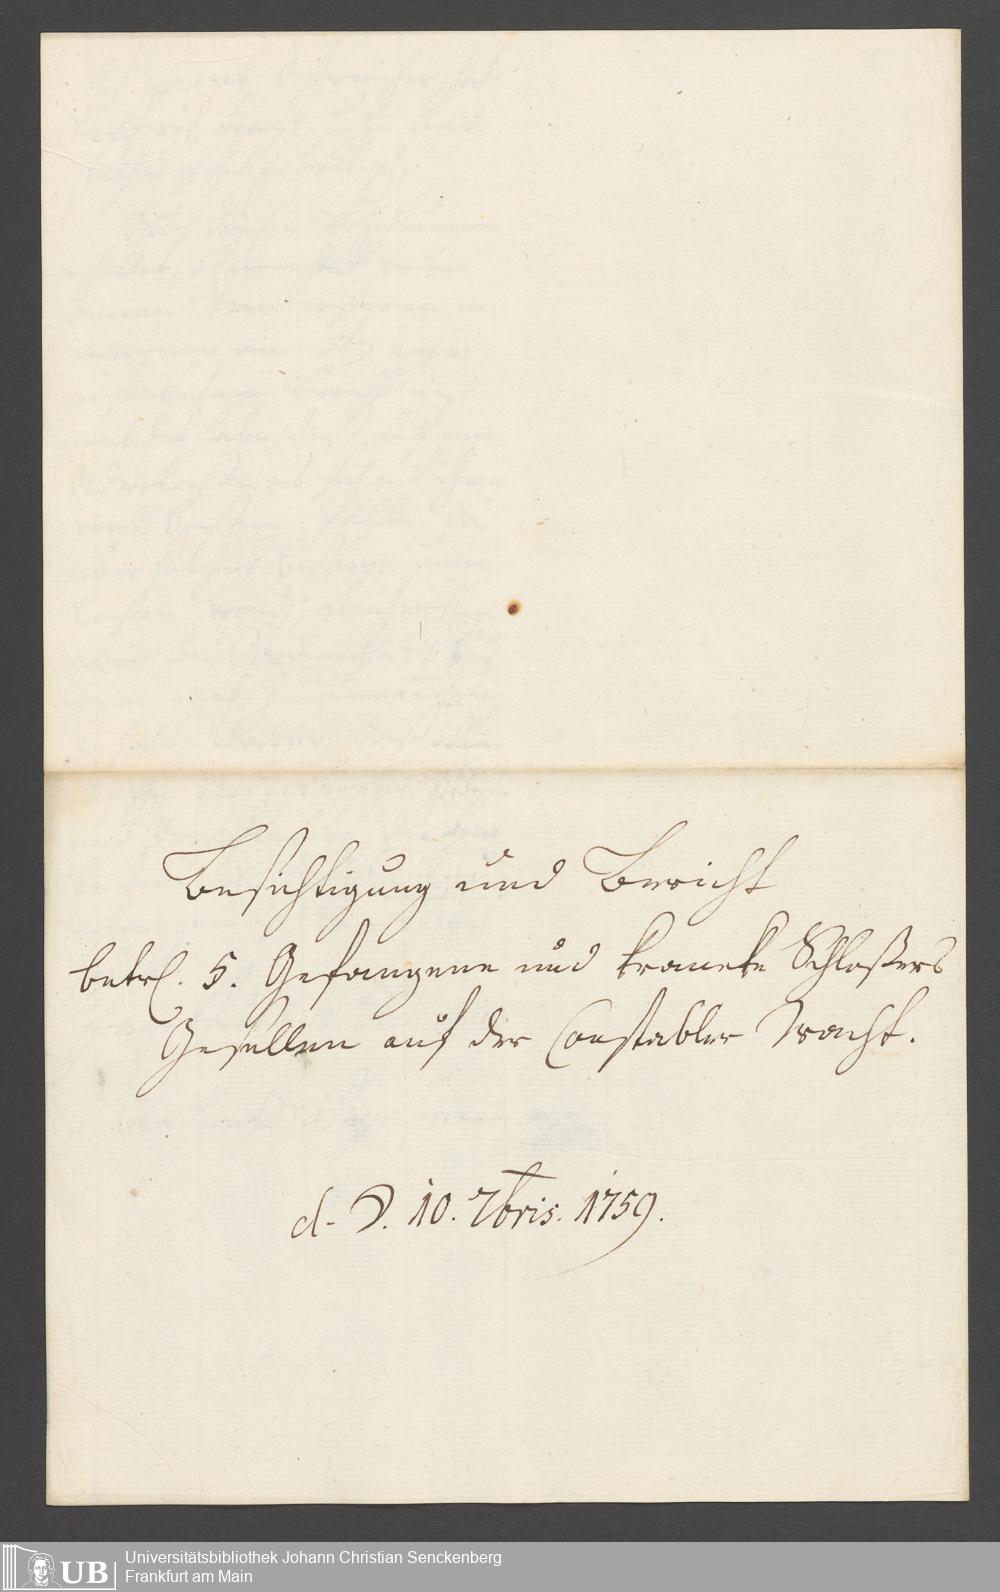 Besichtigung und Bericht
betrl. 5. Gefangene und krancke Schloßers
Gesellen auf der Constabler Wacht.
d. 10. 7bris. 1759.
UB
Universitätsbibliothek Johann Christian Senckenberg
Frankfurt am Main